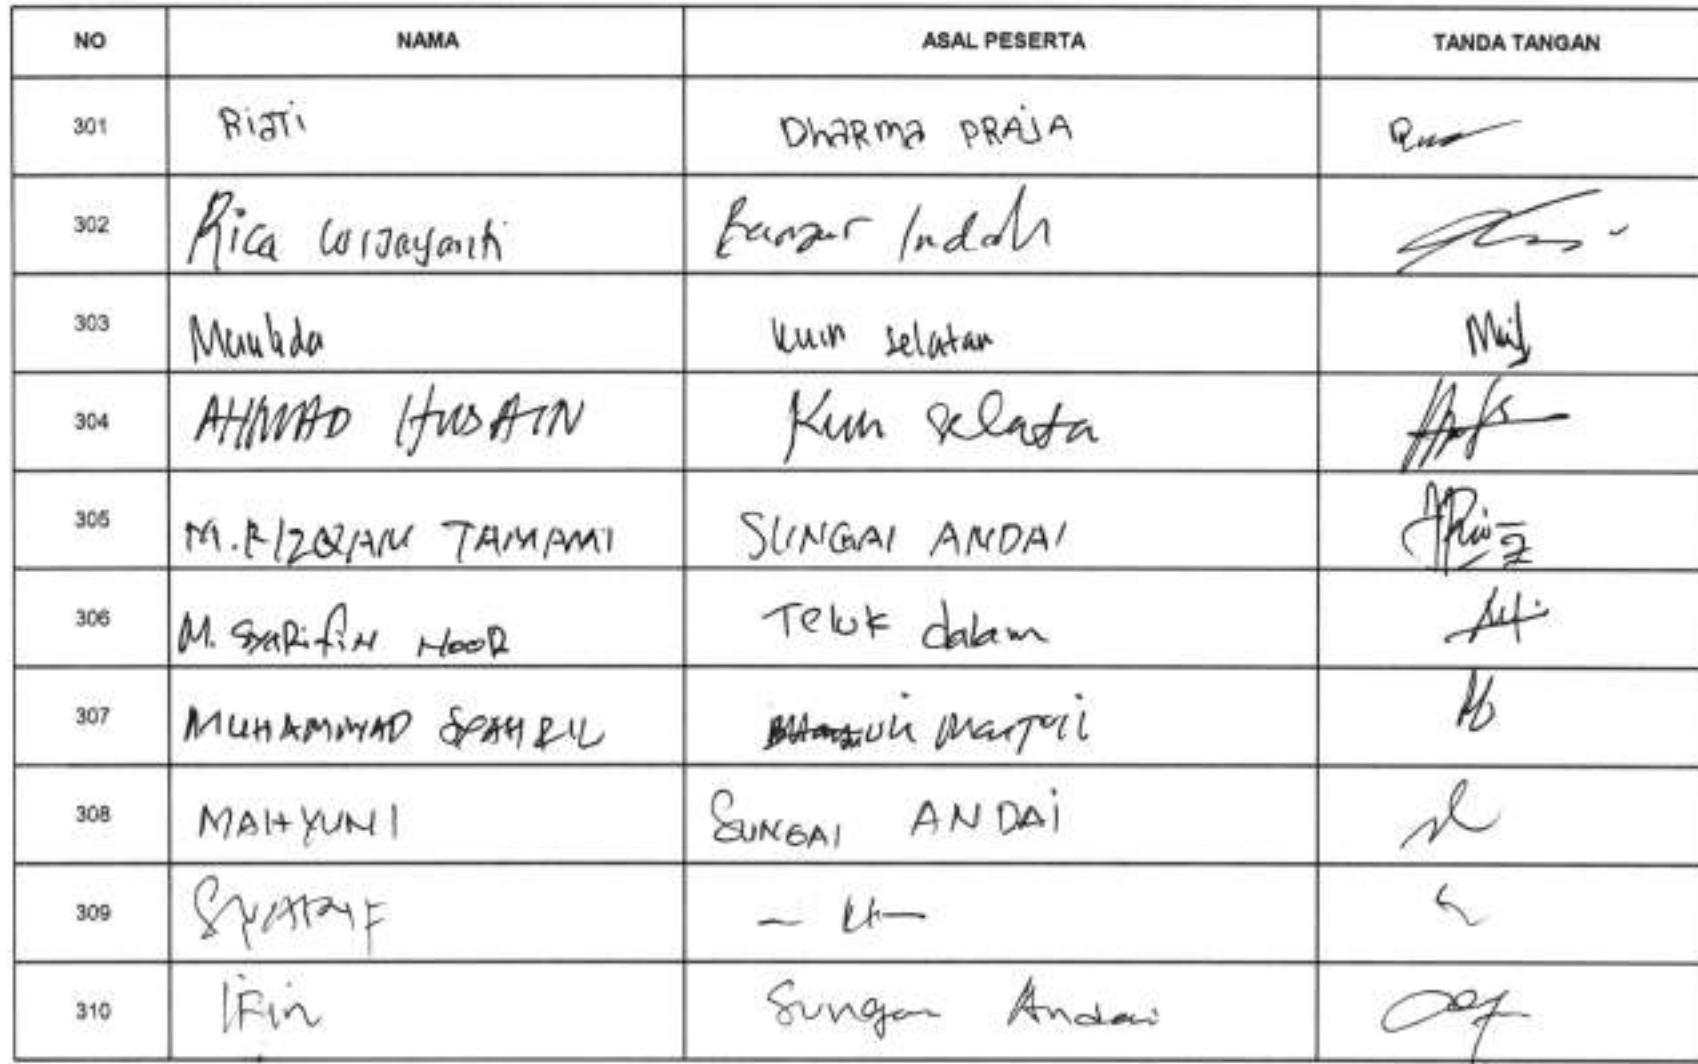 NO NAMA ASAL PESERTA TANDA TANGAN
301 Riati Dharma PRAJA
302 Rica Wijayanti Banjar Indah
303 Kuin selatan
304 AHMAD HUSAIN Kuin Selata
305 M. RIZQIAN TAMAMI SUNGAI ANDAI
306 M. SYARIFIN NOOR Teluk dalam
307 MUHAMMAD SYAHRIL
308 MAHYUNI SUNGAI ANDAI
309 SYARIF
310 IFin Sungai Andai